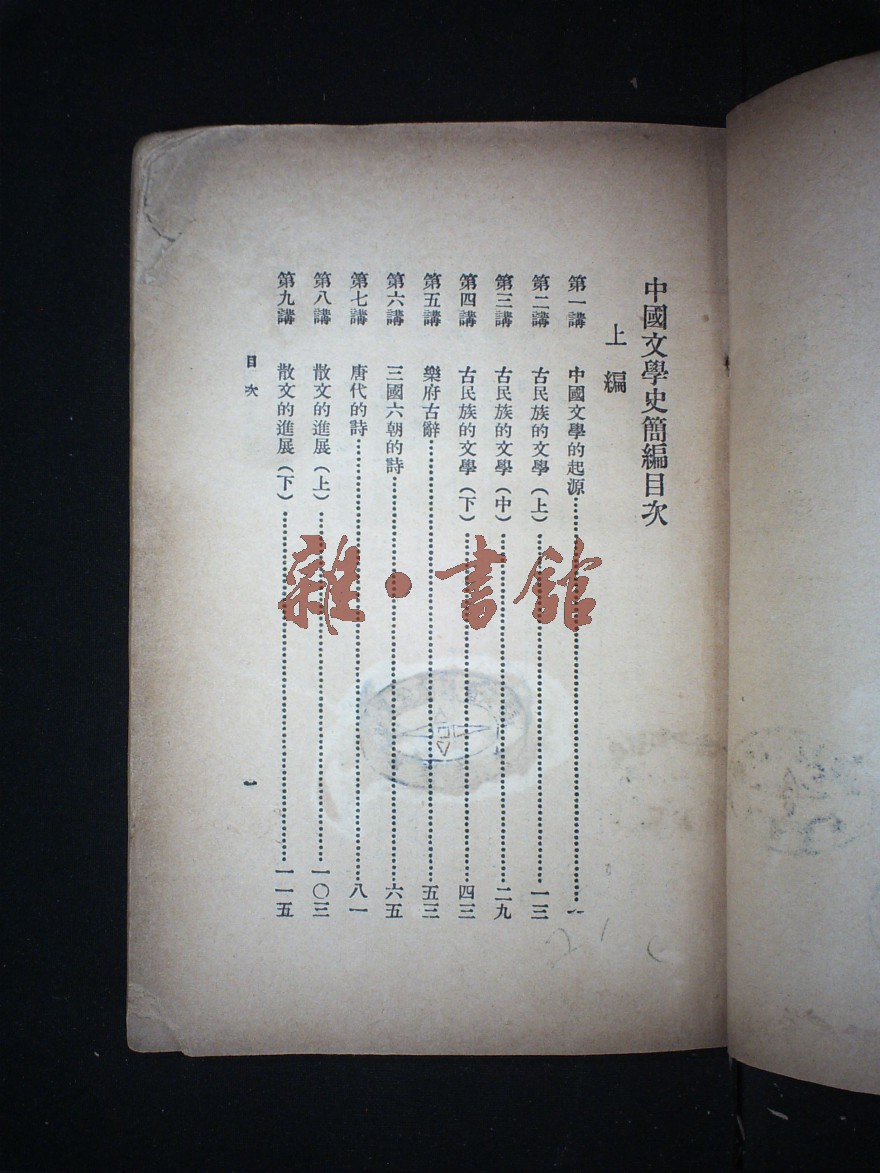 中國文學史簡編目次
上編
第一講 中國文學的起源 一
第二講 古民族的文學(上) 一三
第三講 古民族的文學(中) 二九
第四講 古民族的文學(下) 四三
第五講 樂府古辭 五三
第六講 三國六朝的詩 六五
第七講 唐代的詩 八一
第八講 散文的進展(上) 一〇三
第九講 散文的進展(下) 一一五
目次
一
雜·書館